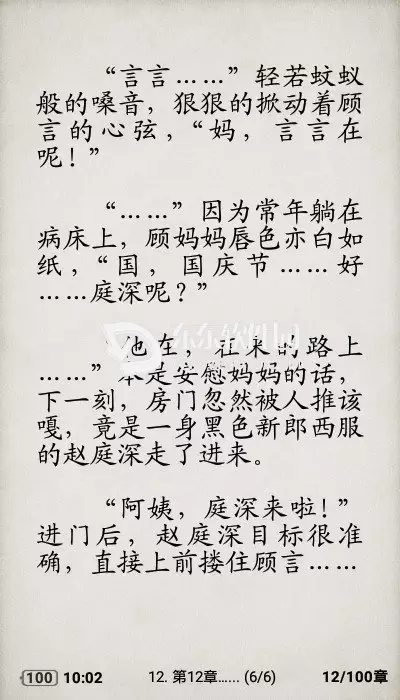 “言言……”轻若蚊蚁
般的嗓音，狠狠的掀动着顾
言的心弦，“妈，言言在
呢！”
“……”因为常年躺在
病床上，顾妈妈唇色亦白如
纸，“国，国庆节……好
……庭深呢？”
“他在，在来的路上
……”本是安慰妈妈的话，
下一刻，房门忽然被人推该
嘎，竟是一身黑色新郎西服
的赵庭深走了进来。
“阿姨，庭深来啦！”
进门后，赵庭深目标很准
确，直接上前搂住顾言……
东东软件园
100 10:02 12. 第12章...... (6/6) 12/100章